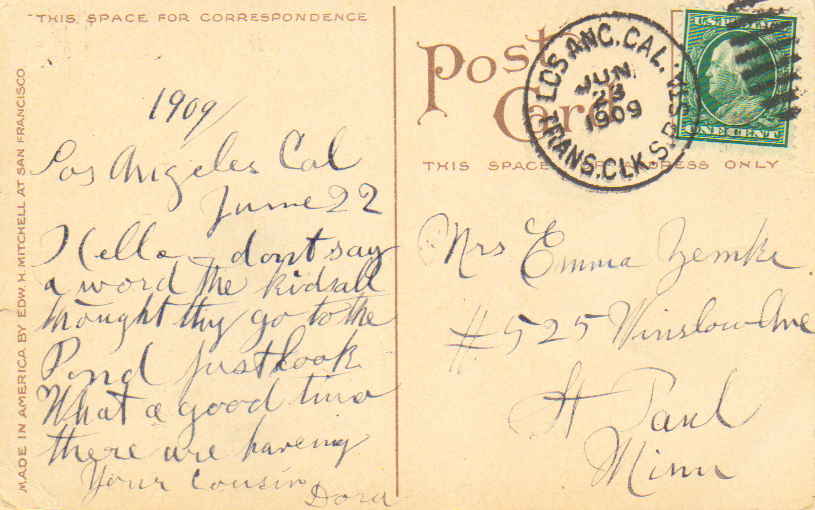 THIS SPACE FOR CORRESPONDENCE
MADE IN AMERICA BY EDW. H. MITCHELL AT SAN FRANCISCO
1909
Los Angeles Cal
June 22
Hello - dont say
a word the kids all
thought thy go to the
Pond just look
What a good time
there are haveing
Your Cousin
Dora
Post
Card
THIS SPACE ADDRESS ONLY
LOS ANG. CAL.
JUN
23
1909
TRANS. CLK. S.P. STA.
ONE CENT
Mrs Emma Zemke
#525 Winslow Ave
St Paul
Minn